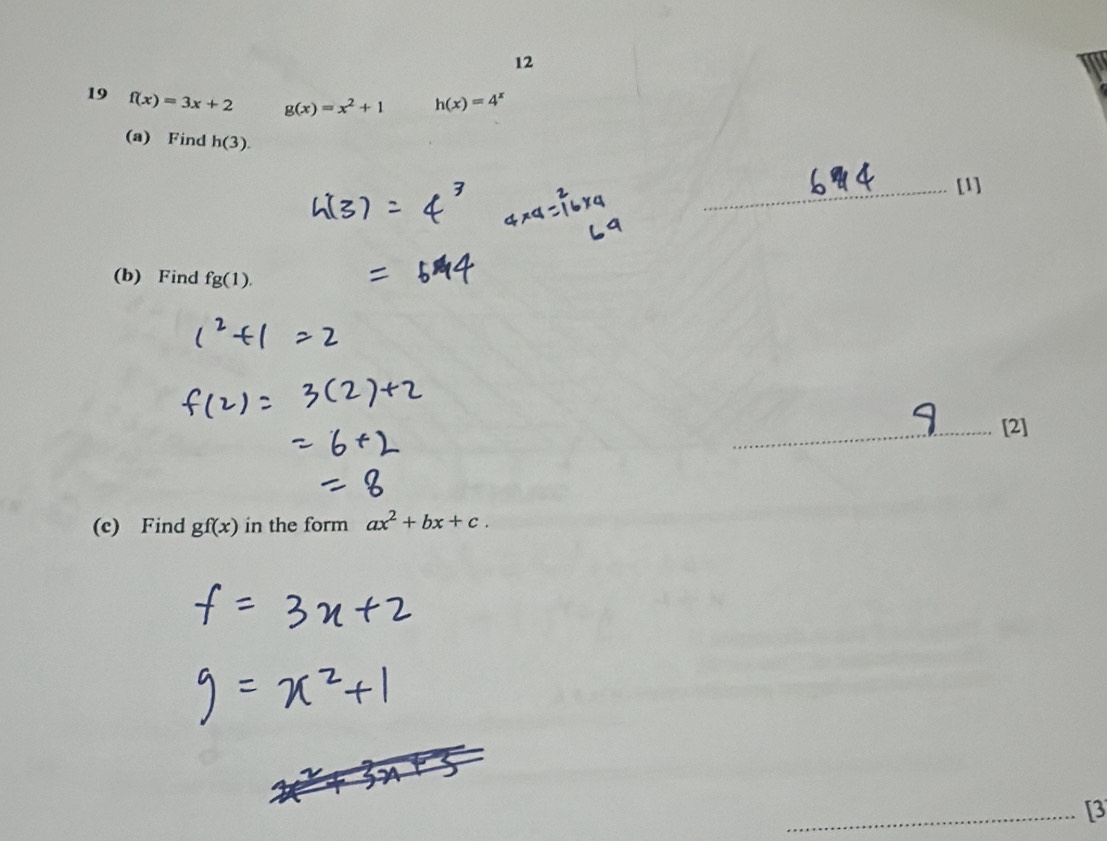 12
19 f(x) = 3x + 2 g(x) = x² + 1 h(x) = 4ˣ
(a) Find h(3).
h(3) = 4³ 4×4=16×4
64
64 [1]
= 64
(b) Find fg(1).
1²+1 = 2
f(2) = 3(2)+2
= 6+2
= 8
8 [2]
(c) Find gf(x) in the form ax² + bx + c .
f = 3x+2
g = x²+1
[3